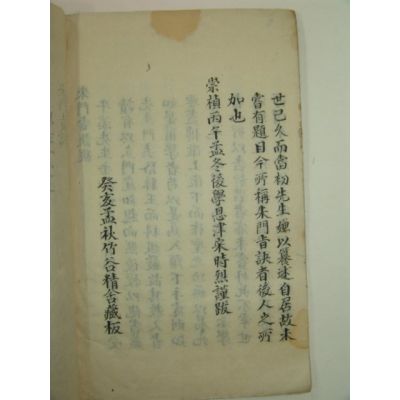 世已久而當初先生嫌以纂述自居故未
嘗有題目今所稱朱門旨訣者後人之所
加也
崇禎丙午孟冬後學恩津宋時烈謹跋
癸亥孟秋竹谷精舍藏板